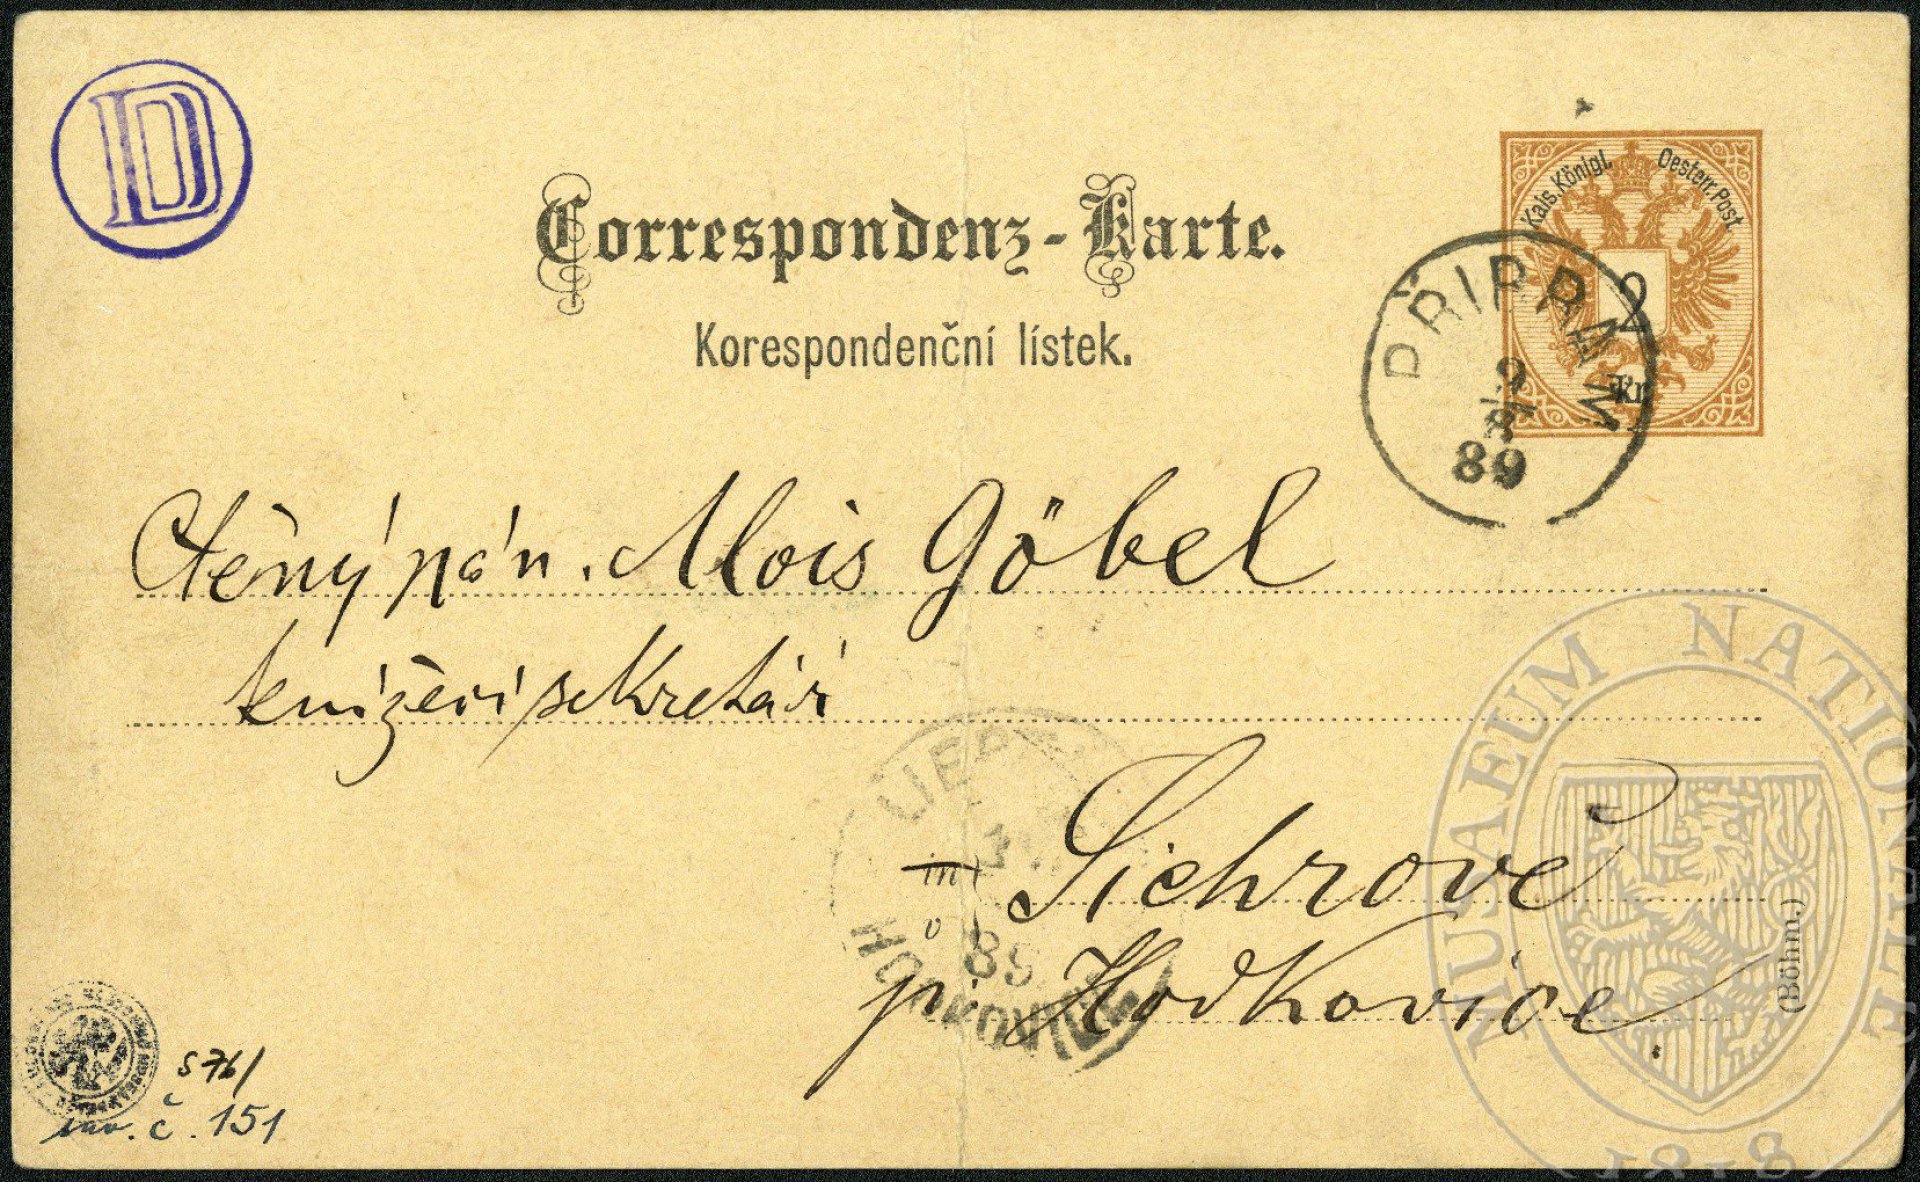 D
Correspondenz-Karte.
Korespondenční lístek.
Kais. Königl. Oesterr. Post
2
kr
PŘIBRAM
9
8
89
Ctěný pán. Alois Göbel
knížecí sekretář
in
v
Sichrově
p. Hodkovice
89
HODKOVICE
(Böhm.)
S 76/
inv. č. 151
MUSAEUM NATIONALE
1818